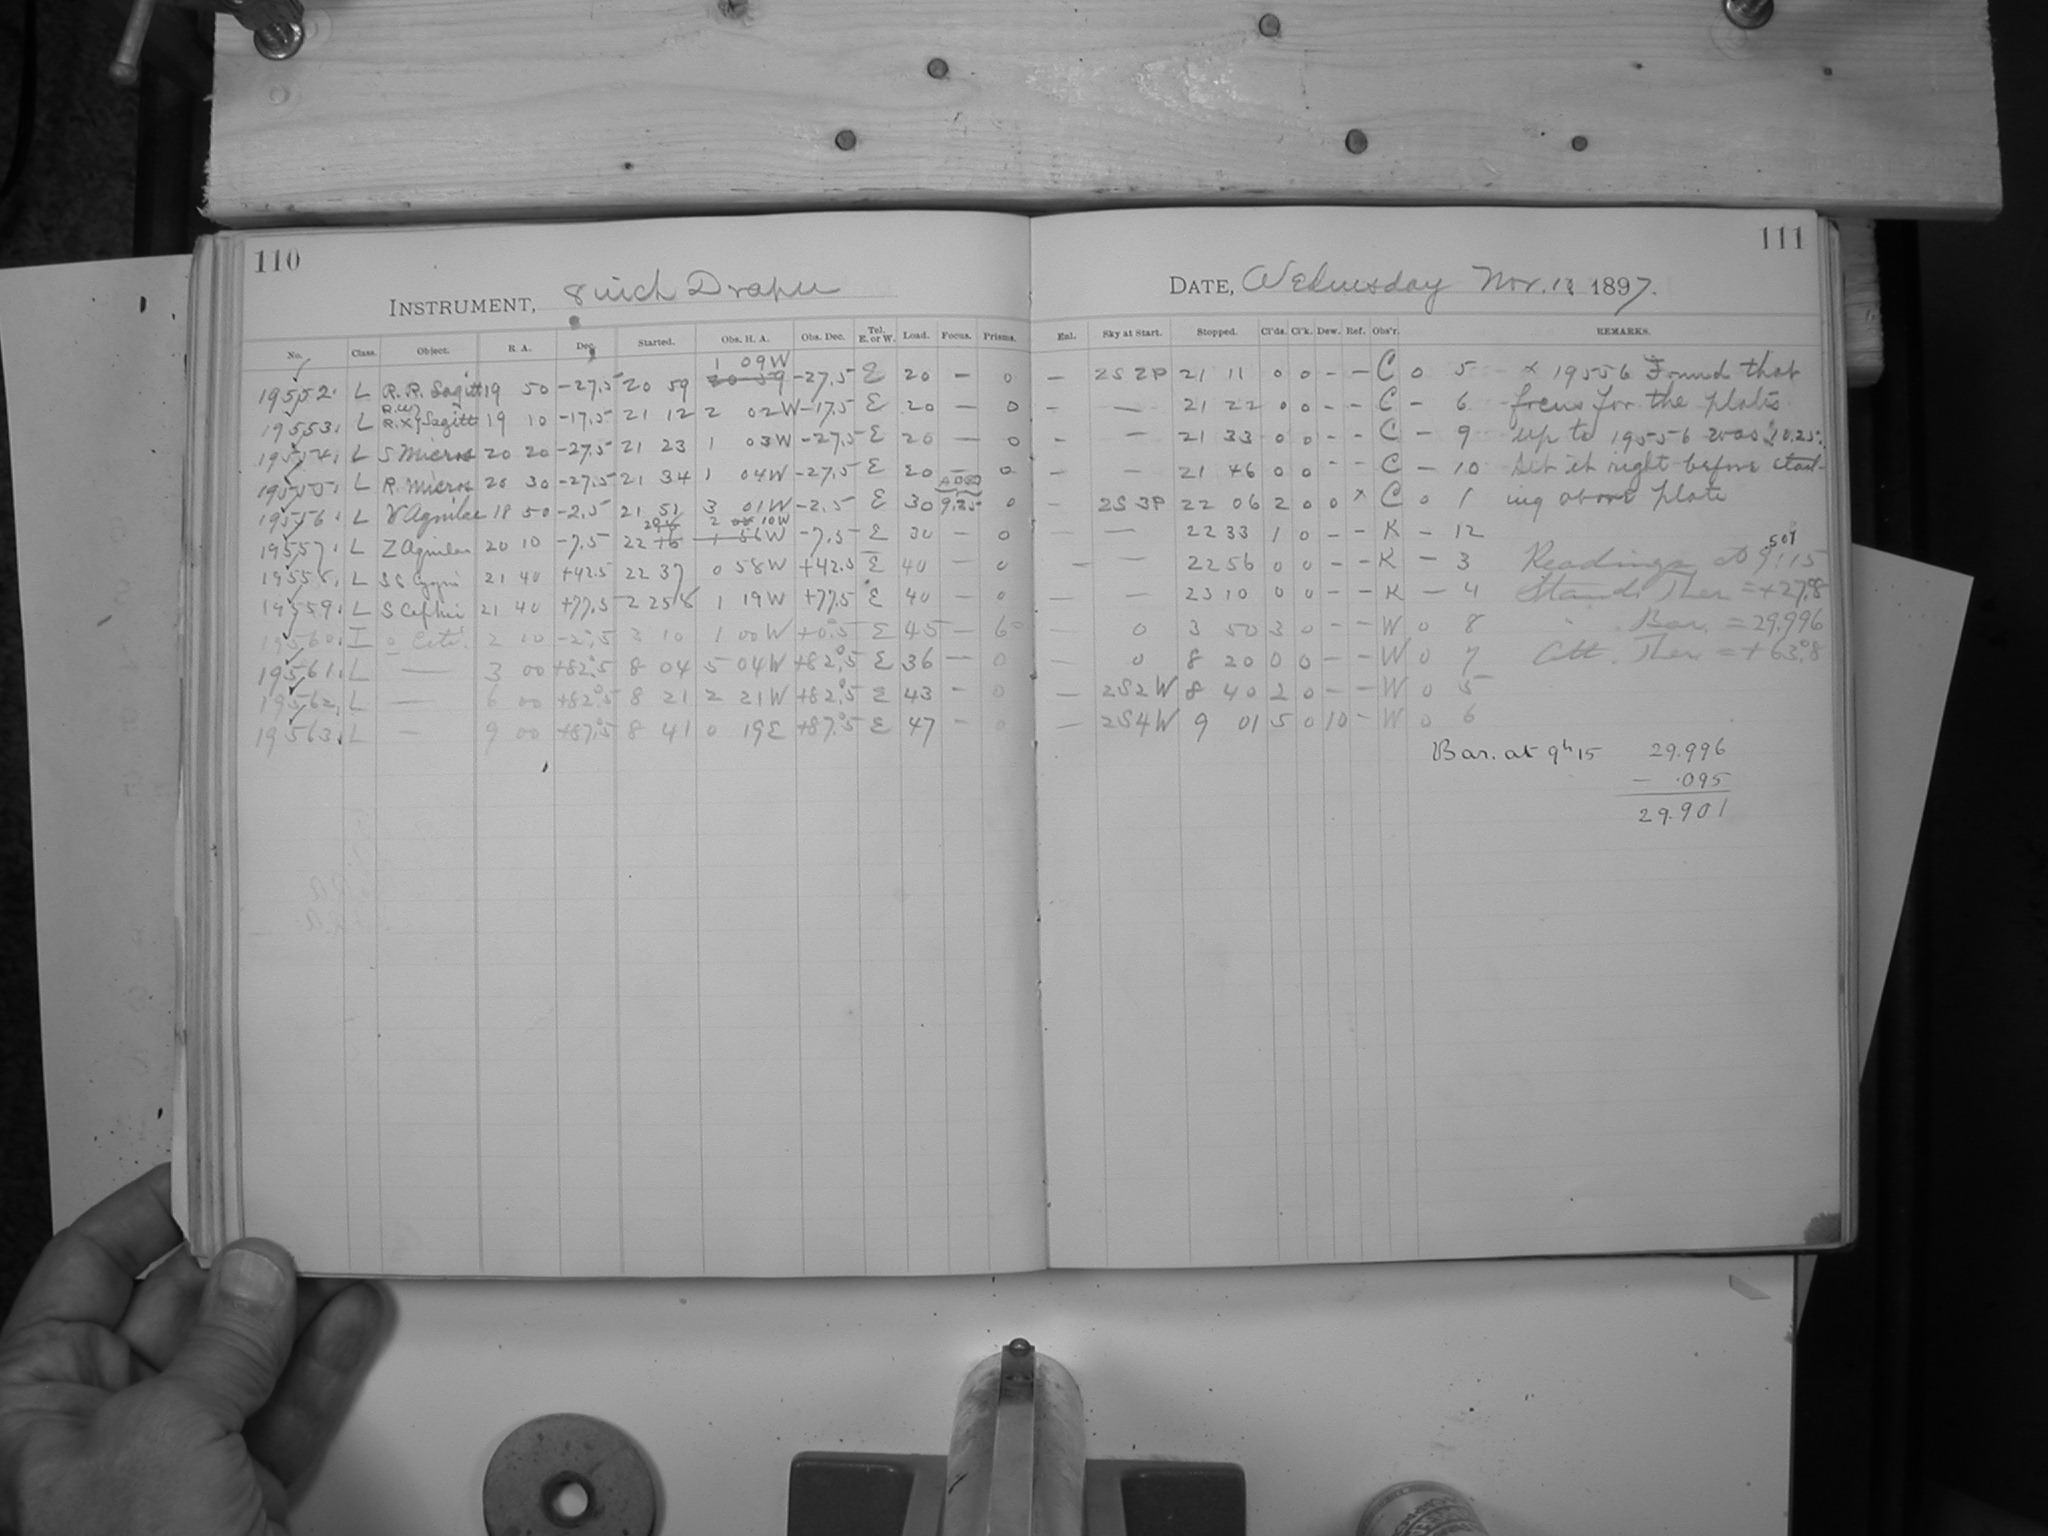 110
111
INSTRUMENT, 8 inch Draper
DATE, Wednesday Nov. 1897.
No. Class. Object. R. A. Dec. Started. Obs. H. A. Obs. Dec. Tel. E. or W. Load. Focus. Prisms. Enl. Sky at Start. Stopped. Cl'ds. Cl'k. Dew. Ref. Obs'r. REMARKS.
1 09W
19552. L R.R. Sagitt 19 50 -27.5 20 59 20 59 -27.5 E 20 - 0 - 2S 2P 21 11 0 0 - - C 0 5 x 19556 Found that
19553. L R.W} R.X} Sagitt 19 10 -17.5 21 12 2 02W -17.5 E 20 - 0 - - 21 22 0 0 - - C - 6 focus for the plates
19554. L S Micros 20 20 -27.5 21 23 1 03W -27.5 E 20 - 0 - - 21 33 0 0 - - C - 9 up to 19556 was 10.25.
19555. L R. Micros 20 30 -27.5 21 34 1 04W -27.5 E 20 - 0 - - 21 46 0 0 - - C - 10 Set it right before start-
19556. L V Aquilae 18 50 -2.5 21 51 3 01W -2.5 E 30 9.25 0 - 2S 3P 22 06 2 0 0 x C 0 1 ing above plate
2 10W
19557. L Z Aquilae 20 10 -7.5 22 16 1 56W -7.5 E 30 - 0 - - 22 33 1 0 - - K - 12
19558. L SS Cygni 21 40 +42.5 22 37 0 58W +42.5 E 40 - 0 - - 22 56 0 0 - - K - 3 Readings at 9:15
19559. L S Cephei 21 40 +77.5 22 58 1 19W +77.5 E 40 - 0 - - 23 10 0 0 - - K - 4 Stand. Ther = +27.8
19560. I o Ceti 2 10 -2.5 3 10 1 00W +0.5 E 45 - 6 - 0 3 50 3 0 - - W 0 8 " Bar. = 29.996
19561. L — 3 00 +82.5 8 04 5 04W +82.5 E 36 - 0 - 0 8 20 0 0 - - W 0 7 Att. Ther = +63.8
19562. L — 6 00 +82.5 8 21 2 21W +82.5 E 43 - 0 - 2S2W 8 40 2 0 - - W 0 5
19563. L — 9 00 +87.5 8 41 0 19E +87.5 E 47 - 0 - 2S4W 9 01 5 0 10 - W 0 6
Bar. at 9h 15 29.996
- .095
29.901